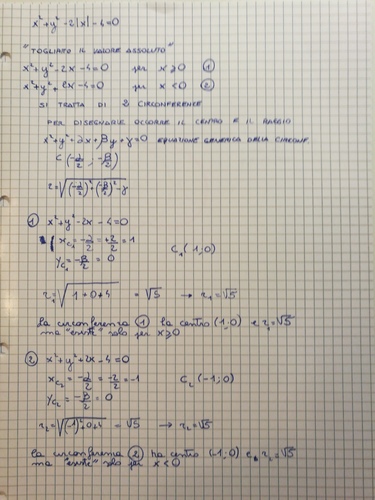 x² + y² - 2|x| - 4 = 0
"TOGLIAMO IL VALORE ASSOLUTO"
x² + y² - 2x - 4 = 0 per x ⩾ 0 ①
x² + y² + 2x - 4 = 0 per x < 0 ②
SI TRATTA DI 2 CIRCONFERENZE
PER DISEGNARLE OCCORRE IL CENTRO E IL RAGGIO
x² + y² + αx + βy + γ = 0 EQUAZIONE GENERICA DELLA CIRCONF.
C (-α/2 ; -β/2)
r = √((-α/2)² + (-β/2)² - γ)
① x² + y² - 2x - 4 = 0
x_C₁ = -α/2 = +2/2 = 1 C₁ (1; 0)
y_C₁ = -β/2 = 0
r₁ = √(1 + 0 + 4) = √5 → r₁ = √5
la circonferenza ① ha centro (1; 0) e r₁ = √5
ma "esiste" solo per x ⩾ 0
② x² + y² + 2x - 4 = 0
x_C₂ = -α/2 = -2/2 = -1 C₂ (-1; 0)
y_C₂ = -β/2 = 0
r₂ = √((-1)² + 0 + 4) = √5 → r₂ = √5
la circonferenza ② ha centro (-1; 0) e r₂ = √5
ma "esiste" solo per x < 0